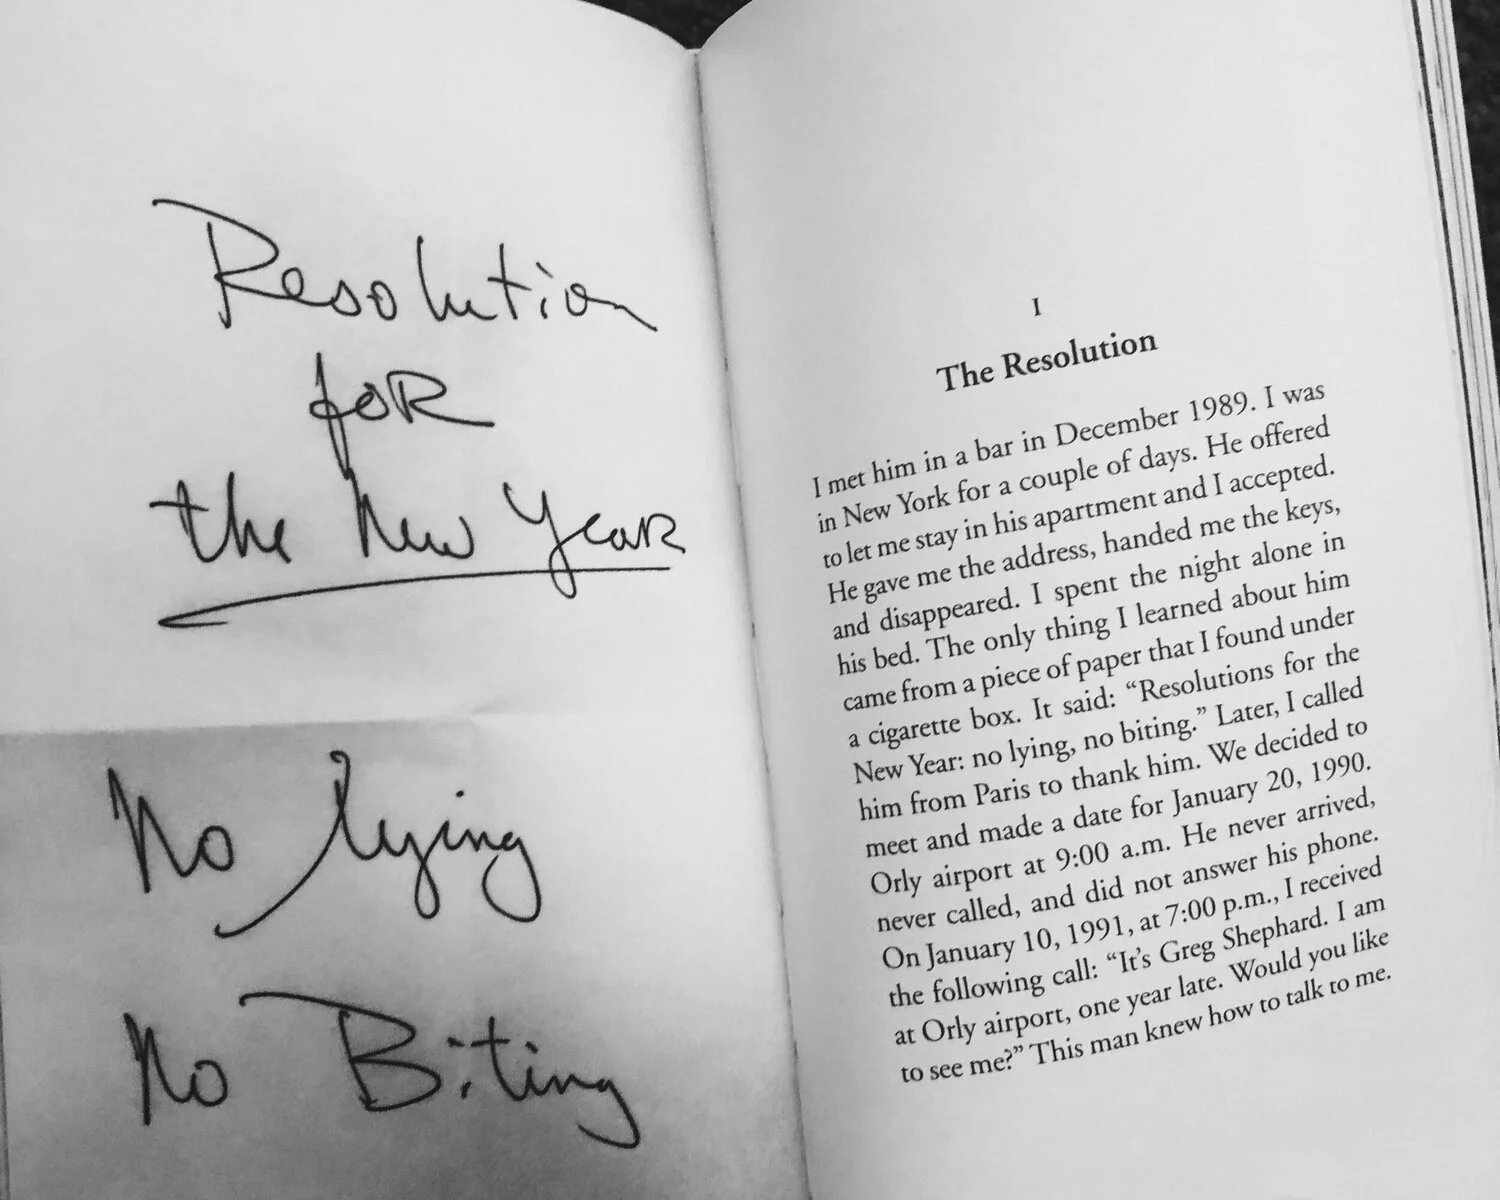 Resolution
for
the New Year
No lying
No Biting
I
The Resolution
I met him in a bar in December 1989. I was
in New York for a couple of days. He offered
to let me stay in his apartment and I accepted.
He gave me the address, handed me the keys,
and disappeared. I spent the night alone in
his bed. The only thing I learned about him
came from a piece of paper that I found under
a cigarette box. It said: “Resolutions for the
New Year: no lying, no biting.” Later, I called
him from Paris to thank him. We decided to
meet and made a date for January 20, 1990.
Orly airport at 9:00 a.m. He never arrived,
never called, and did not answer his phone.
On January 10, 1991, at 7:00 p.m., I received
the following call: “It’s Greg Shephard. I am
at Orly airport, one year late. Would you like
to see me?” This man knew how to talk to me.